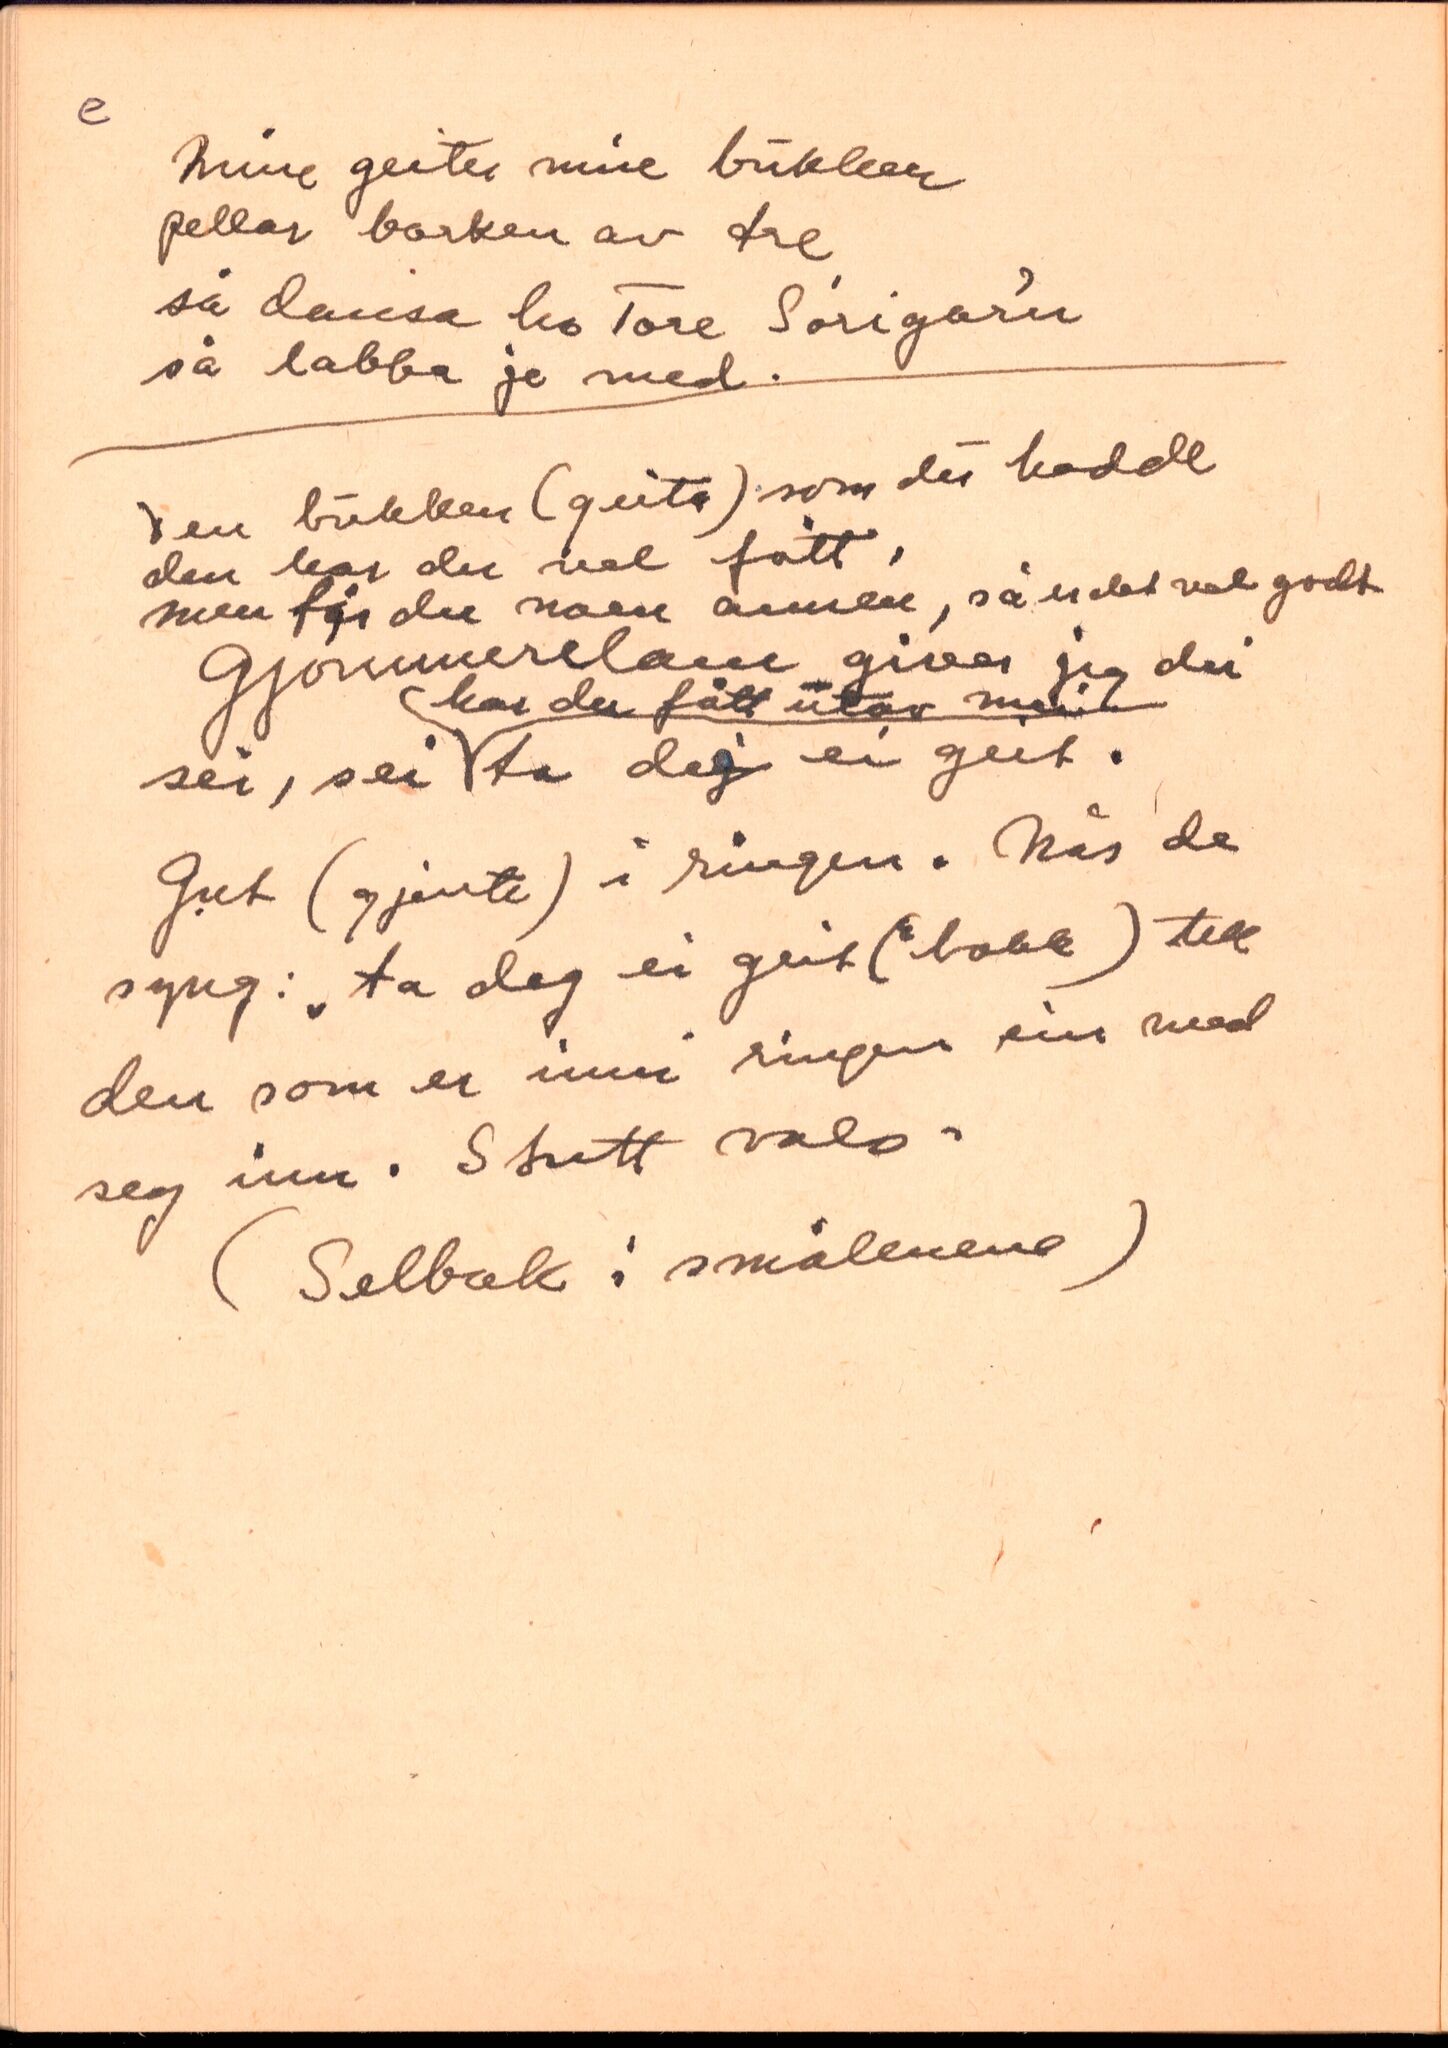 e
Mine geiter mine bukker
pellar borken av tre
så dansa ho Tore Sørigar'n
så labba je med.
Den bukken (geita) som du hadde
den har du vel fått,
men får du noen annen, så er det vel godt
Gjømmerelam giver jeg dei
(har du fått utav mei
sei, sei ta deg ei geit.
Gut (gjente) i ringen. Når de
syng: „ta deg ei geit ("bokk) tek
den som er inni ringen ein med
seg inn. Stutt vals.
(Selbak i smålenene)